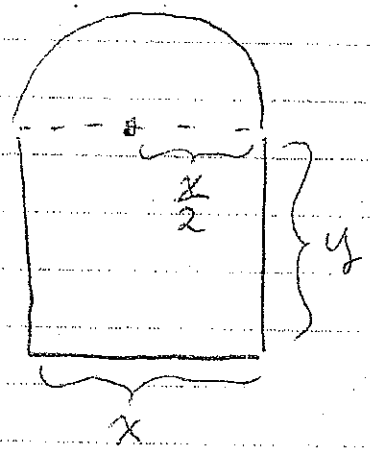 x/2
y
x